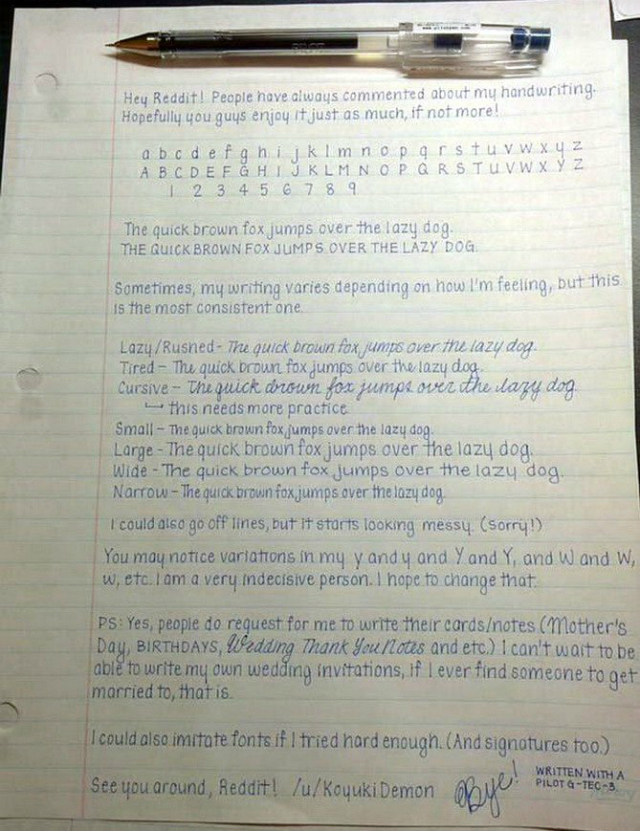 PILOT
Hey Reddit! People have always commented about my handwriting.
Hopefully you guys enjoy it just as much, if not more!
a b c d e f g h i j k l m n o p q r s t u v w x y z
A B C D E F G H I J K L M N O P Q R S T U V W X Y Z
1 2 3 4 5 6 7 8 9
The quick brown fox jumps over the lazy dog.
THE QUICK BROWN FOX JUMPS OVER THE LAZY DOG.
Sometimes, my writing varies depending on how I'm feeling, but this
is the most consistent one.
Lazy/Rushed - The quick brown fox jumps over the lazy dog.
Tired - The quick brown fox jumps over the lazy dog.
Cursive - The quick brown fox jumps over the lazy dog.
↳ this needs more practice
Small - The quick brown fox jumps over the lazy dog.
Large - The quick brown fox jumps over the lazy dog.
Wide - The quick brown fox jumps over the lazy dog.
Narrow - The quick brown fox jumps over the lazy dog.
I could also go off lines, but it starts looking messy. (Sorry!)
You may notice variations in my y and y and Y and Y, and W and W,
w, etc. I am a very indecisive person. I hope to change that.
PS: Yes, people do request for me to write their cards/notes. (Mother's
Day, BIRTHDAYS, Wedding Thank You Notes and etc.) I can't wait to be
able to write my own wedding invitations, if I ever find someone to get
married to, that is.
I could also imitate fonts if I tried hard enough. (And signatures too.)
See you around, Reddit! /u/Koyuki Demon
Bye!
WRITTEN WITH A
PILOT G-TEC-3